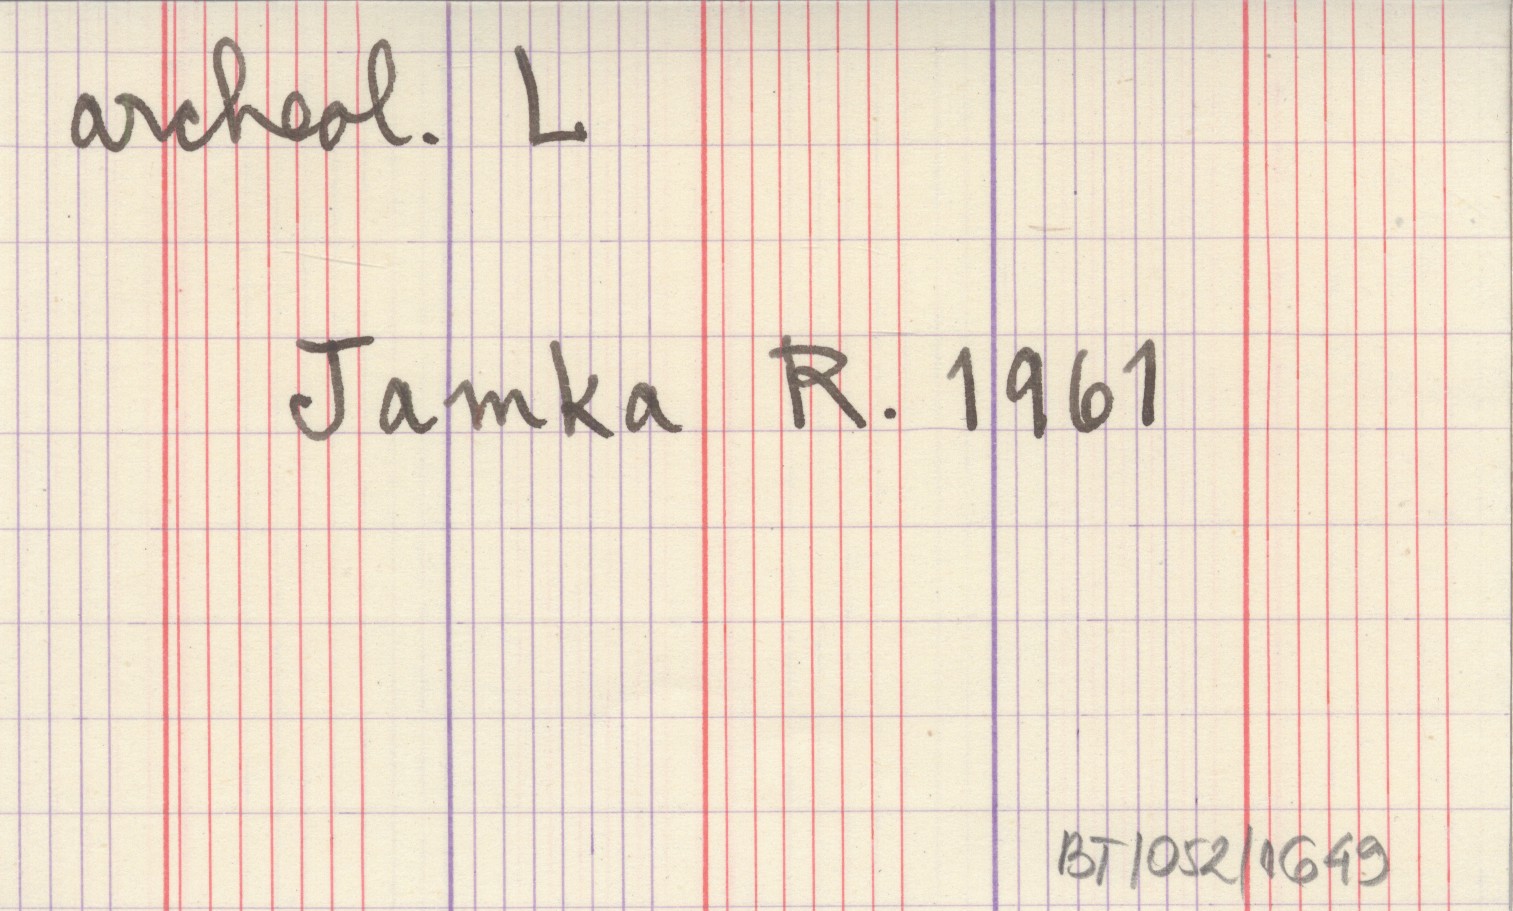 archeol. L
Jamka R. 1961
BT/052/1649